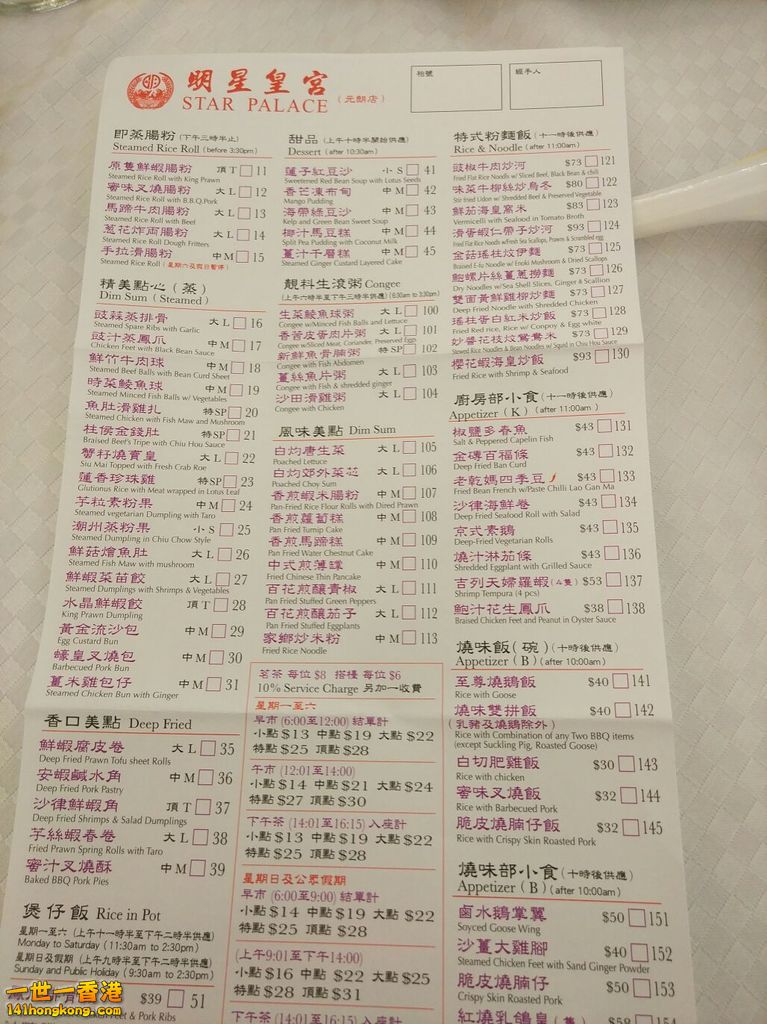 明星皇宮
STAR PALACE
(元朗店)
枱號
經手人
即蒸腸粉(下午三時半止)
Steamed Rice Roll (before 3:30pm)
原隻鮮蝦腸粉 頂 T 11
Steamed Rice Roll with King Prawn
蜜味叉燒腸粉 大 L 12
Steamed Rice Roll with B.B.Q.Pork
馬蹄牛肉腸粉 大 L 13
Steamed Rice Roll with Beef
蔥花炸兩腸粉 大 L 14
Steamed Rice Roll Dough Fritters
手拉滑腸粉 大 L 15
Steamed Rice Roll (星期六及假日暫停)
精美點心(蒸)
Dim Sum (Steamed)
豉蒜蒸排骨 大 L 16
Steamed Spare Ribs with Garlic
豉汁蒸鳳爪 中 M 17
Chicken Feet with Black Bean Sauce
鮮竹牛肉球 中 M 18
Steamed Beef Balls with Bean Curd Sheet
時菜鯪魚球 中 M 19
Steamed Minced Fish Balls w/ Vegetables
魚肚滑雞扎 特SP 20
Steamed Chicken with Fish Maw and Mushroom
柱侯金錢肚 特SP 21
Braised Beef's Tripe with Chiu Hou Sauce
蟹籽燒賣皇 大 L 22
Siu Mai Topped with Fresh Crab Roe
蓮香珍珠雞 特SP 23
Glutionus Rice with Meat wrapped in Lotus Leaf
芋粒素粉果 中 M 24
Steamed vegetarian Dumpling with Taro
潮州蒸粉果 小 S 25
Steamed Dumpling in Chiu Chow Style
鮮菇燴魚肚 大 L 26
Steamed Fish Maw with mushroom
鮮蝦菜苗餃 大 L 27
Steamed Dumplings with Shrimps & Vegetables
水晶鮮蝦餃 頂 T 28
King Prawn Dumpling
黃金流沙包 中 M 29
Egg Custard Bun
蠔皇叉燒包 中 M 30
Barbecued Pork Bun
薑米雞包仔 中 M 31
Steamed Chicken Bun with Ginger
香口美點 Deep Fried
鮮蝦腐皮卷 大 L 35
Deep Fried Prawn Tofu sheet Rolls
安蝦鹹水角 中 M 36
Deep Fried Pork Pastry
沙律鮮蝦角 頂 T 37
Deep Fried Shrimps & Salad Dumplings
芋絲蝦春卷 大 L 38
Fried Prawn Spring Rolls with Taro
蜜汁叉燒酥 中 M 39
Baked BBQ Pork Pies
煲仔飯 Rice in Pot
星期一至六 (上午十一時半至下午二時半供應)
Monday to Saturday (11:30am to 2:30pm)
星期日及假期 (上午九時半至下午二時半供應)
Sunday and Public Holiday (9:30am to 2:30pm)
$39 51
Feet & Pork Ribs
甜品 (上午十時半開始供應)
Dessert (after 10:30am)
蓮子紅豆沙 小 S 41
Sweetened Red Bean Soup with Lotus Seeds
香芒凍布甸 中 M 42
Mango Pudding
海帶綠豆沙 中 M 43
Kelp and Green Bean Sweet Soup
椰汁馬豆糕 中 M 44
Split Pea Pudding with Coconut Milk
薑汁千層糕 中 M 45
Steamed Ginger Custard Layered Cake
靚料生滾粥 Congee
(上午六時半至下午三時半供應) (6:30am to 3:30pm)
生菜鯪魚球粥 大 L 100
Congee w/Minced Fish Balls and Lettuce
香茜皮蛋肉片粥 大 L 101
Congee w/Sliced Meat, Coriander, Preserved Eggs
新鮮魚骨腩粥 特 SP 102
Congee with Fish Abdomen
薑絲魚片粥 大 L 103
Congee with Fish & shredded ginger
沙田滑雞粥 大 L 104
Congee with Chicken
風味美點 Dim Sum
白灼唐生菜 大 L 105
Poached Lettuce
白灼郊外菜芯 大 L 106
Poached Choy Sum
香煎蝦米腸粉 中 M 107
Pan-Fried Rice Flour Rolls with Dired Prawn
香煎蘿蔔糕 中 M 108
Pan Fried Turnip Cake
香煎馬蹄糕 中 M 109
Pan Fried Water Chestnut Cake
中式煎薄罉 中 M 110
Fried Chinese Thin Pancake
百花煎釀青椒 大 L 111
Pan Fried Stuffed Green Peppers
百花煎釀茄子 大 L 112
Pan Fried Stuffed Eggplants
家鄉炒米粉 中 M 113
Fried Rice Noodle
茗茶 每位 $8 搭檯 每位 $6
10% Service Charge 另加一收費
星期一至六
早市 (6:00至12:00) 結單計
小點 $13 中點 $19 大點 $22
特點 $25 頂點 $28
午市 (12:01至14:00)
小點 $14 中點 $21 大點 $24
特點 $27 頂點 $30
下午茶 (14:01至16:15) 入座計
小點 $13 中點 $19 大點 $22
特點 $25 頂點 $28
星期日及公眾假期
早市 (6:00至9:00) 結單計
小點 $14 中點 $19 大點 $22
特點 $25 頂點 $28
(上午9:01至下午14:00)
小點 $16 中點 $22 大點 $25
特點 $28 頂點 $31
下午茶 (14:01至16:15) 入座計
特式粉麵飯 (十一時後供應)
Rice & Noodle (after 11:00am)
豉椒牛肉炒河 $73 121
Fried Flat Rice Noodles w/ Sliced Beef, Black Bean & chili
味菜牛柳絲炒烏冬 $80 122
鮮茄海皇窩米 $83 123
Vermicelli with Seafood in Tomato Broth
滑蛋蝦仁帶子炒河 $93 124
Fried Flat Rice Noodles w/Fresh Sea Scallops, Prawns & Scrambled egg
金菇瑤柱炆伊麵 $73 125
Braised E-fu Noodle w/ Enoki Mushroom & Dried Scallops
鮑螺片絲薑蔥撈麵 $73 126
Dry Noodles w/Sea Shell Slices, Ginger & Scallion
雙面黃鮮雞柳炒麵 $73 127
Deep Fried Noodle with Shredded Chicken
瑤柱蛋白紅米炒飯 $73 128
Fried Red rice, Rice w/ Conpoy & Egg white
妙醬花枝炆鴛鴦米 $73 129
Stewed Rice Noodles & Bean Noodles w/ Squid in Chiu Hou Sauce
櫻花蝦海皇炒飯 $93 130
Fried Rice with Shrimp & Seafood
廚房部小食 (十一時後供應)
Appetizer (K) (after 11:00am)
椒鹽多春魚 $43 131
Salt & Peppered Capelin Fish
金磚百福條 $43 132
Deep Fried Ban Curd
老乾媽四季豆 $43 133
Fried Bean French w/Paste Chilli Lao Gan Ma
沙律海鮮卷 $43 134
Deep Fried Seafood Roll with Salad
京式素鵝 $43 135
Deep-Fried Vegetarian Rolls
燒汁淋茄條 $43 136
Shredded Eggplant with Grilled Sauce
吉列天婦羅蝦(4隻) $53 137
Shrimp Tempura (4 pcs)
鮑汁花生鳳爪 $38 138
Braised Chicken Feet and Peanut in Oyster Sauce
燒味飯(碗) (十時後供應)
Appetizer (B) (after 10:00am)
至尊燒鵝飯 $40 141
Rice with Goose
燒味雙拼飯 $40 142
(乳豬及燒鵝除外)
Rice with Combination of any Two BBQ items
(except Suckling Pig, Roasted Goose)
白切肥雞飯 $30 143
Rice with chicken
蜜味叉燒飯 $32 144
Rice with Barbecued Pork
脆皮燒腩仔飯 $32 145
Rice with Crispy Skin Roasted Pork
燒味部小食 (十時後供應)
Appetizer (B) (after 10:00am)
鹵水鵝掌翼 $50 151
Soyced Goose Wing
沙薑大雞腳 $40 152
Steamed Chicken Feet with Sand Ginger Powder
脆皮燒腩仔 $50 153
Crispy Skin Roasted Pork
紅燒乳鴿皇 (隻) $58 154
一世一香港
141hongkong.com